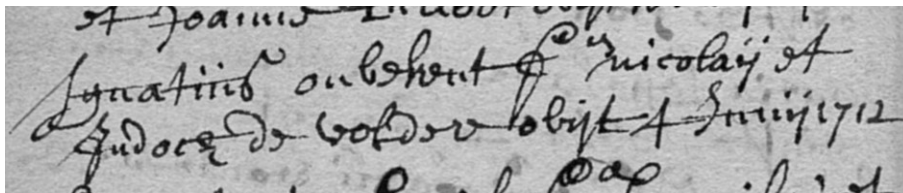 et Joanne
Ignatius onbekent fs nicolaij et
Judocæ de volder obijt 4 Junij 1712